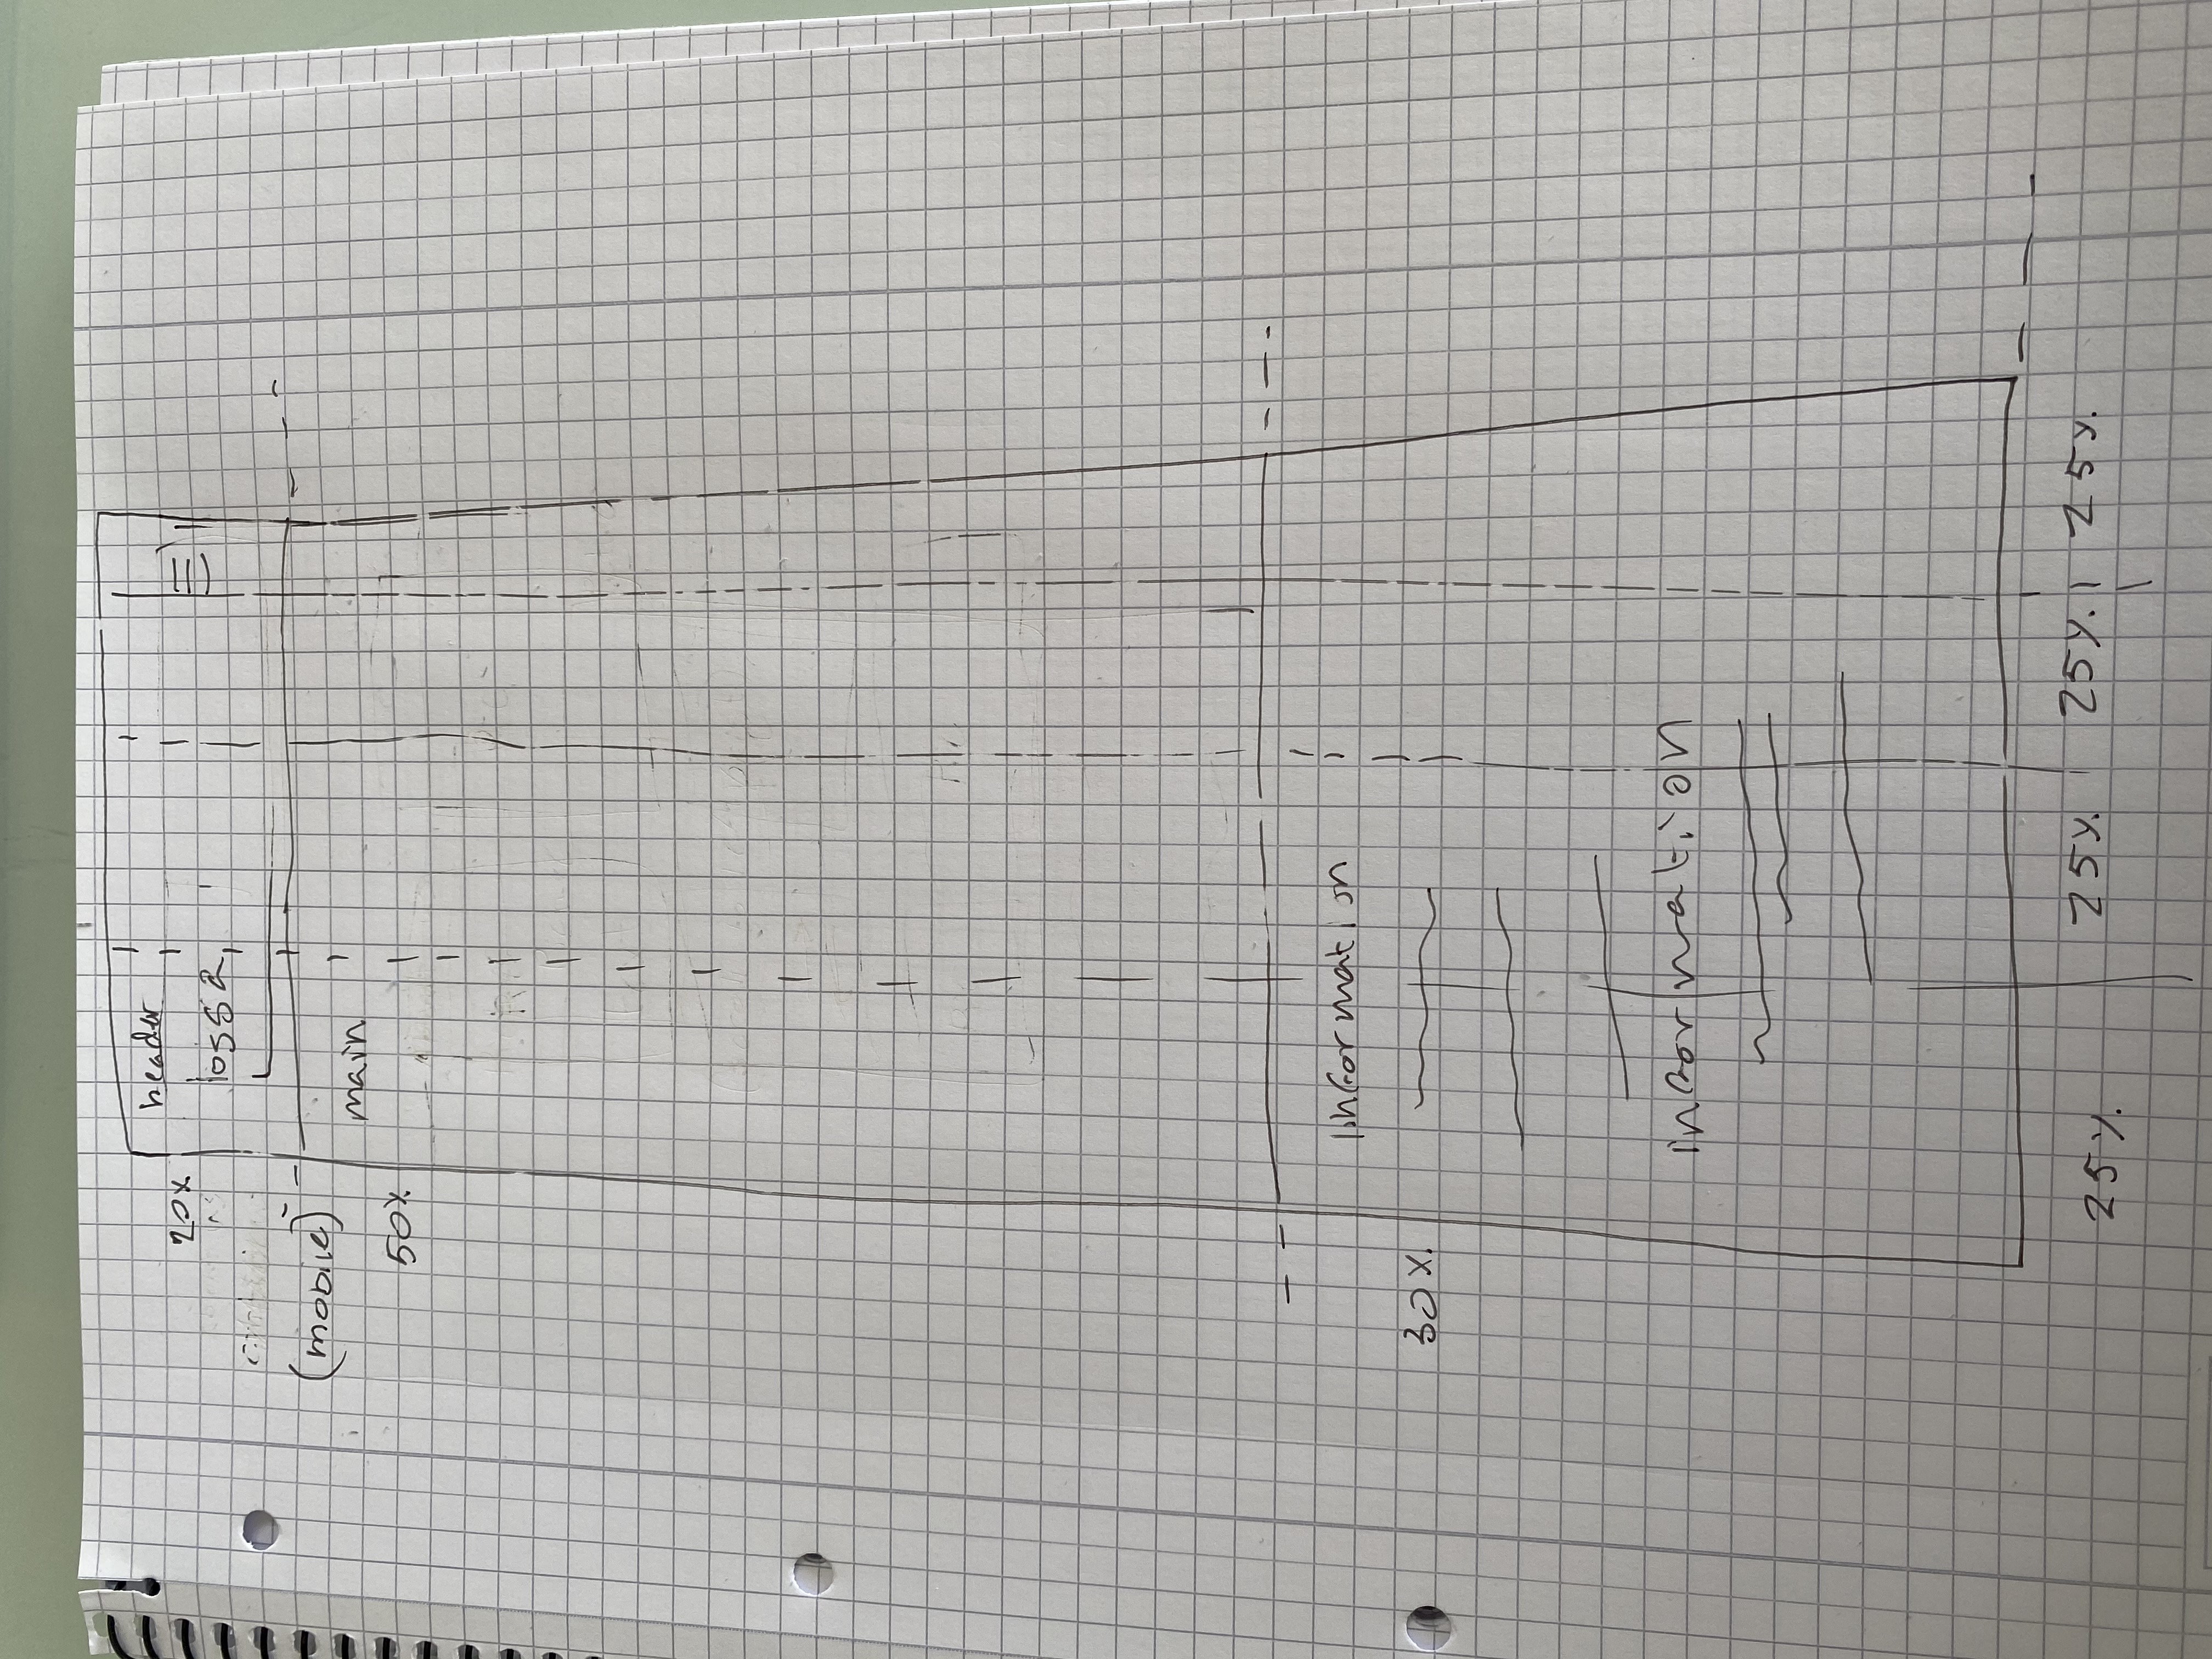 header
20%
(mobile)
main
50%
information
30%
information
25% 25% 25% 25%